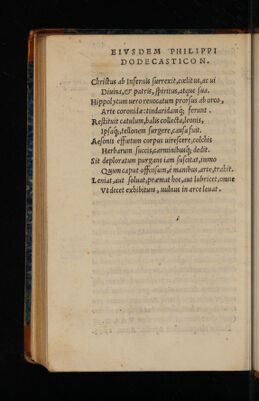 EIVSDEM PHILIPPI
DODECASTICON.
Christus ab Infernis surrexit, cœlitus, ac ui
Diuina, & patris, spiritus, atque sua.
Hippolytum uero reuocatum prorsus ab orco,
Arte coronidæ: tindaridamq; ferunt.
Restituit catulum, halis collecta, leonis,
Ipsaq; tellonem surgere, causa fuit.
Aesonis effœtum corpus uirescere, colchis
Herbarum succis, carminibusq; dedit.
Sit deploratum purgans iam suscitat, immo
Quum caput offensum, è manibus, arte, trahit.
Leniat, aut soluat, præmat hoc, aut lubricet, omne
Vt decet exhibitum, nullius in arce leuat.